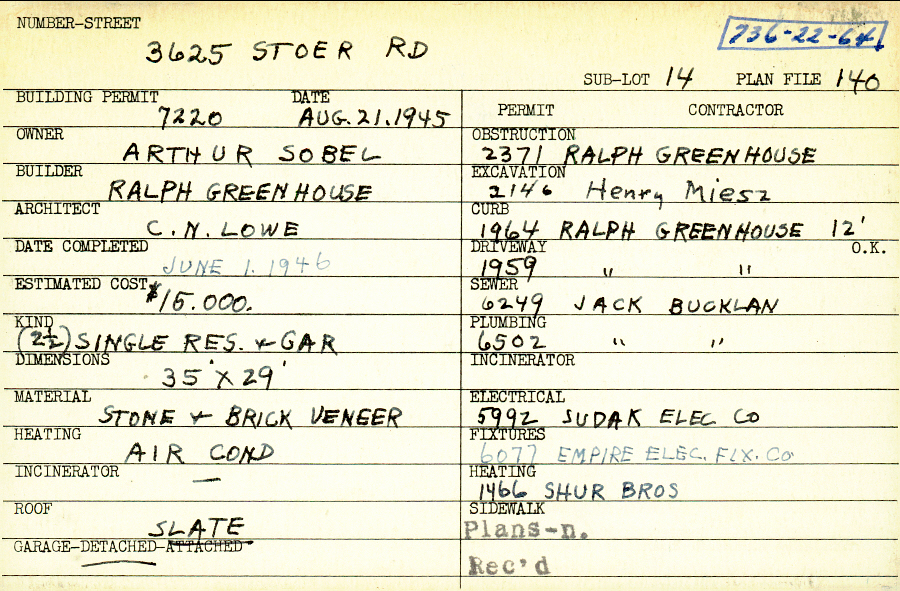 NUMBER-STREET
3625 STOER RD
736-22-64
SUB-LOT 14 PLAN FILE 140
BUILDING PERMIT DATE
7220 AUG. 21. 1945
OWNER
ARTHUR SOBEL
BUILDER
RALPH GREENHOUSE
ARCHITECT
C. N. LOWE
DATE COMPLETED
JUNE 1. 1946
ESTIMATED COST
$15.000.
KIND
(2½) SINGLE RES. & GAR
DIMENSIONS
35' X 29'
MATERIAL
STONE & BRICK VENEER
HEATING
AIR COND
INCINERATOR
—
ROOF
SLATE
GARAGE-DETACHED-ATTACHED
PERMIT CONTRACTOR
OBSTRUCTION
2371 RALPH GREENHOUSE
EXCAVATION
2146 Henry Miesz
CURB
1964 RALPH GREENHOUSE 12'
DRIVEWAY O.K.
1959 " "
SEWER
6249 JACK BUCKLAN
PLUMBING
6502 " "
INCINERATOR
ELECTRICAL
5992 SUDAK ELEC CO
FIXTURES
6077 EMPIRE ELEC. FIX. CO
HEATING
1466 SHUR BROS
SIDEWALK
Plans-n.
Rec'd